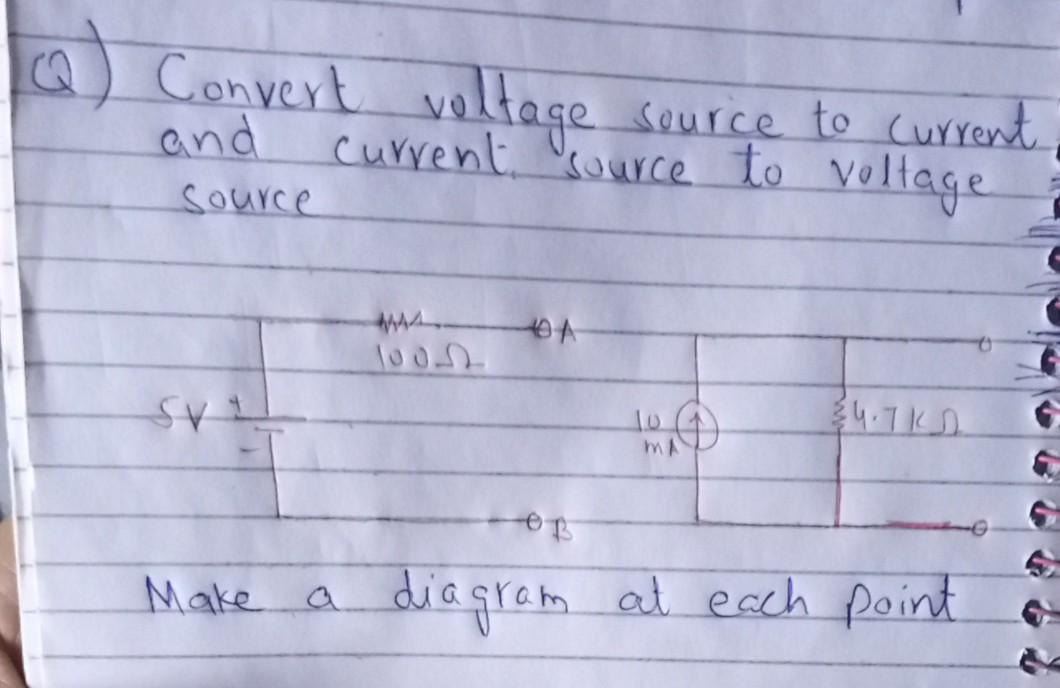 Q) Convert voltage source to current
and current source to voltage
source
100Ω
A
5V + -
B
10
mA
4.7KΩ
Make a diagram at each point